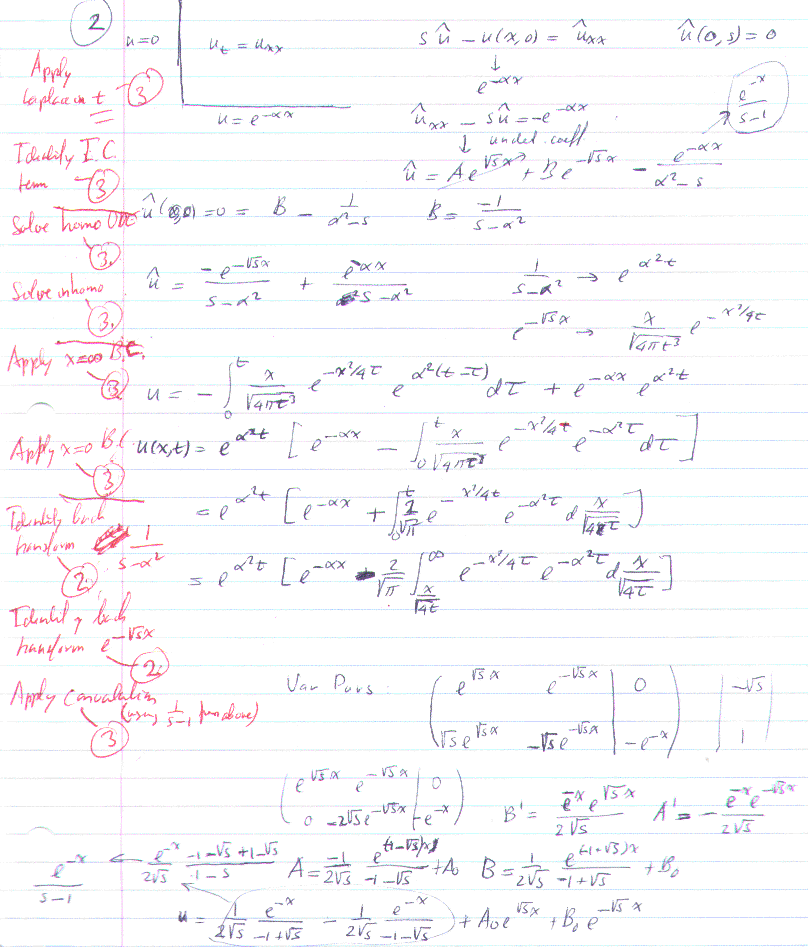 2
u=0
u_t = u_xx
s û - u(x,0) = û_xx    û(0,s) = 0
↓
e^{-αx}
Apply
Laplace in t
3
u = e^{-αx}
û_xx - sû = -e^{-αx}
e^{-x}/(s-1)
↓ undet. coeff
Identify I.C.
term
3
û = Ae^{√s x} + Be^{-√s x} - e^{-αx}/(α²-s)
Solve homo ODE
3.
= 0 = B - 1/(α²-s)    B = -1/(s-α²)
Solve inhomo
3.
û = -e^{-√s x}/(s-α²) + e^{-αx}/(s-α²)    1/(s-α²) → e^{α²t}
e^{-√s x} → x/√(4πt³) e^{-x²/4t}
Apply x=∞ B.C.
3
u = -∫_0^t x/√(4πτ³) e^{-x²/4τ} e^{α²(t-τ)} dτ + e^{-αx} e^{α²t}
Apply x=0 B.C.
3
u(x,t) = e^{α²t} [ e^{-αx} - ∫_0^t x/√(4πτ³) e^{-x²/4τ} e^{-α²τ} dτ ]
Identify back
transform 1/(s-α²)
2.
= e^{α²t} [ e^{-αx} + ∫_0^t 2/√π e^{-x²/4τ} e^{-α²τ} d x/√(4τ) ]
= e^{α²t} [ e^{-αx} - 2/√π ∫_{x/√(4t)}^∞ e^{-x²/4τ} e^{-α²τ} d x/√(4τ) ]
Identify back
transform e^{-√s x}
2.
Apply convolution
(using 1/(s-1) from above)
3
Var Pars: ( e^{√s x}  e^{-√s x} | 0 )  | -√s |
( √s e^{√s x}  -√s e^{-√s x} | -e^{-x} )  | 1 |
( e^{√s x}  e^{-√s x} | 0 )
( 0  -2√s e^{-√s x} | -e^{-x} )    B' = e^{-x} e^{√s x}/(2√s)    A' = - e^{-x} e^{-√s x}/(2√s)
e^{-x}/(s-1) ← e^{-x}/(2√s) (-1-√s+1-√s)/(1-s)    A = -1/(2√s) e^{(-1-√s)x}/(-1-√s) + A₀    B = 1/(2√s) e^{(-1+√s)x}/(-1+√s) + B₀
u = 1/(2√s) e^{-x}/(-1+√s) - 1/(2√s) e^{-x}/(-1-√s) + A₀e^{√s x} + B₀e^{-√s x}